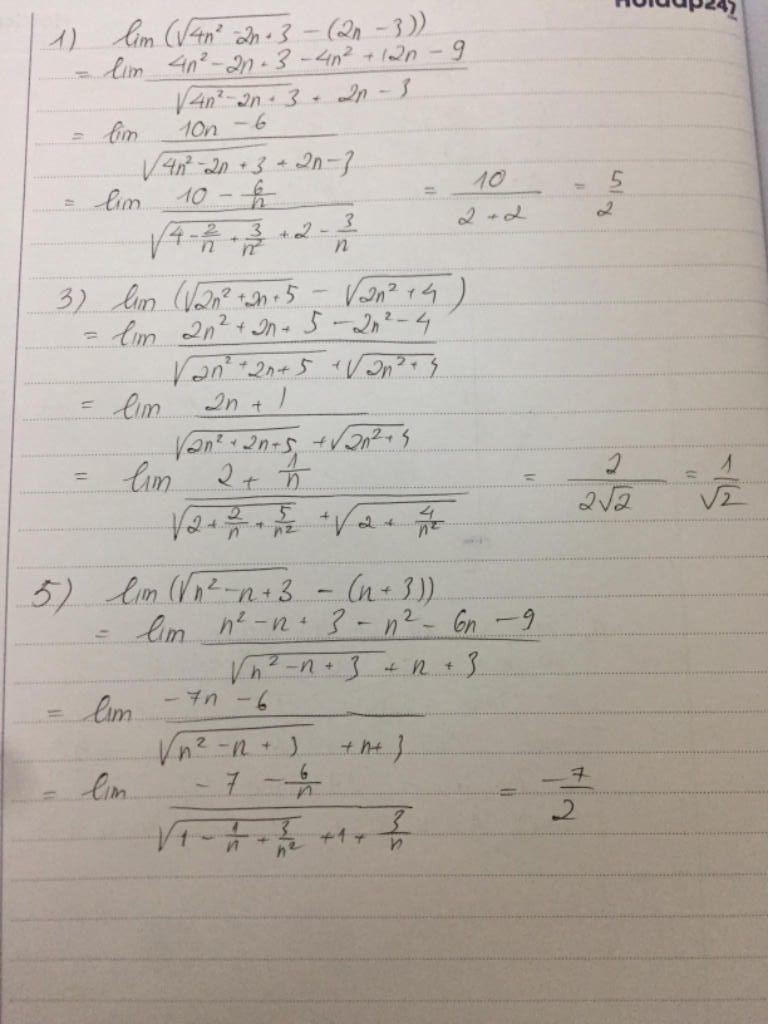 Hoidap247
1) lim (√(4n² - 2n + 3) - (2n - 3))
= lim (4n² - 2n + 3 - 4n² + 12n - 9)/(√(4n² - 2n + 3) + 2n - 3)
= lim (10n - 6)/(√(4n² - 2n + 3) + 2n - 3)
= lim (10 - 6/n)/(√(4 - 2/n + 3/n²) + 2 - 3/n) = 10/(2 + 2) = 5/2
3) lim (√(2n² + 2n + 5) - √(2n² + 4))
= lim (2n² + 2n + 5 - 2n² - 4)/(√(2n² + 2n + 5) + √(2n² + 4))
= lim (2n + 1)/(√(2n² + 2n + 5) + √(2n² + 4))
= lim (2 + 1/n)/(√(2 + 2/n + 5/n²) + √(2 + 4/n²)) = 2/(2√2) = 1/√2
5) lim (√(n² - n + 3) - (n + 3))
= lim (n² - n + 3 - n² - 6n - 9)/(√(n² - n + 3) + n + 3)
= lim (-7n - 6)/(√(n² - n + 3) + n + 3)
= lim (-7 - 6/n)/(√(1 - 1/n + 3/n²) + 1 + 3/n) = -7/2